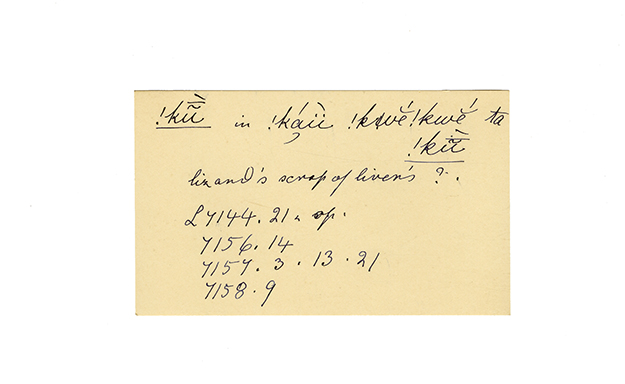 !kũ̀ in !k̦áùi !kwé!kwé ta
!kũ̀
lizard's scrap of liver's ?.
L 7144. 21. op.
7156. 14
7157. 3. 13. 21
7158. 9